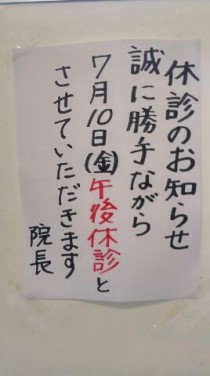 休診のお知らせ
誠に勝手ながら
7月10日(金)午後休診と
させていただきます
院長